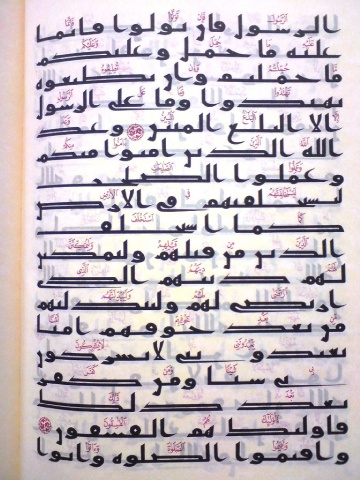 الرسول فان تولوا فانما
عليه ما حمل وعليكم
ما حملتم وان تطيعوه
تهتدوا وما على الرسول
الا البلغ المبين وعد
الله الذين امنوا منكم
وعملوا الصلحت
ليستخلفنهم في الارض
كما استخلف
الذين من قبلهم وليمكنن
لهم دينهم الذي
ارتضى لهم وليبدلنهم
من بعد خوفهم امنا
يعبدونني لا يشركون
بي شيئا ومن كفر
بعد ذلك
فاولئك هم الفسقون
واقيموا الصلوة واتوا